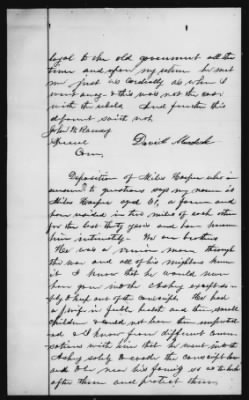 loyal to the old government all the
time and upon my return he met
me just as cordially as when I
went away & this was not the case
with the rebels. And further this
deponent saith not.
John B. David
Special
Com.
Deposition of Miles Harper who in
answer to questions says my name is
Miles Harper aged 51, a farmer and
have resided in two miles of each other
for the last thirty years and have known
him intimately. We are brothers
He was a union man through
the war and all of his neighbors knew
it I know that he would never
have gone into the Army except
to keep out of the conscript. He had
a wife in feeble health and then small
children & could not leave them unprotected
and I know from different conver-
sations with him that he went into the
Army solely to evade the conscript law
and to be near his family so as to look
after them and protect them.